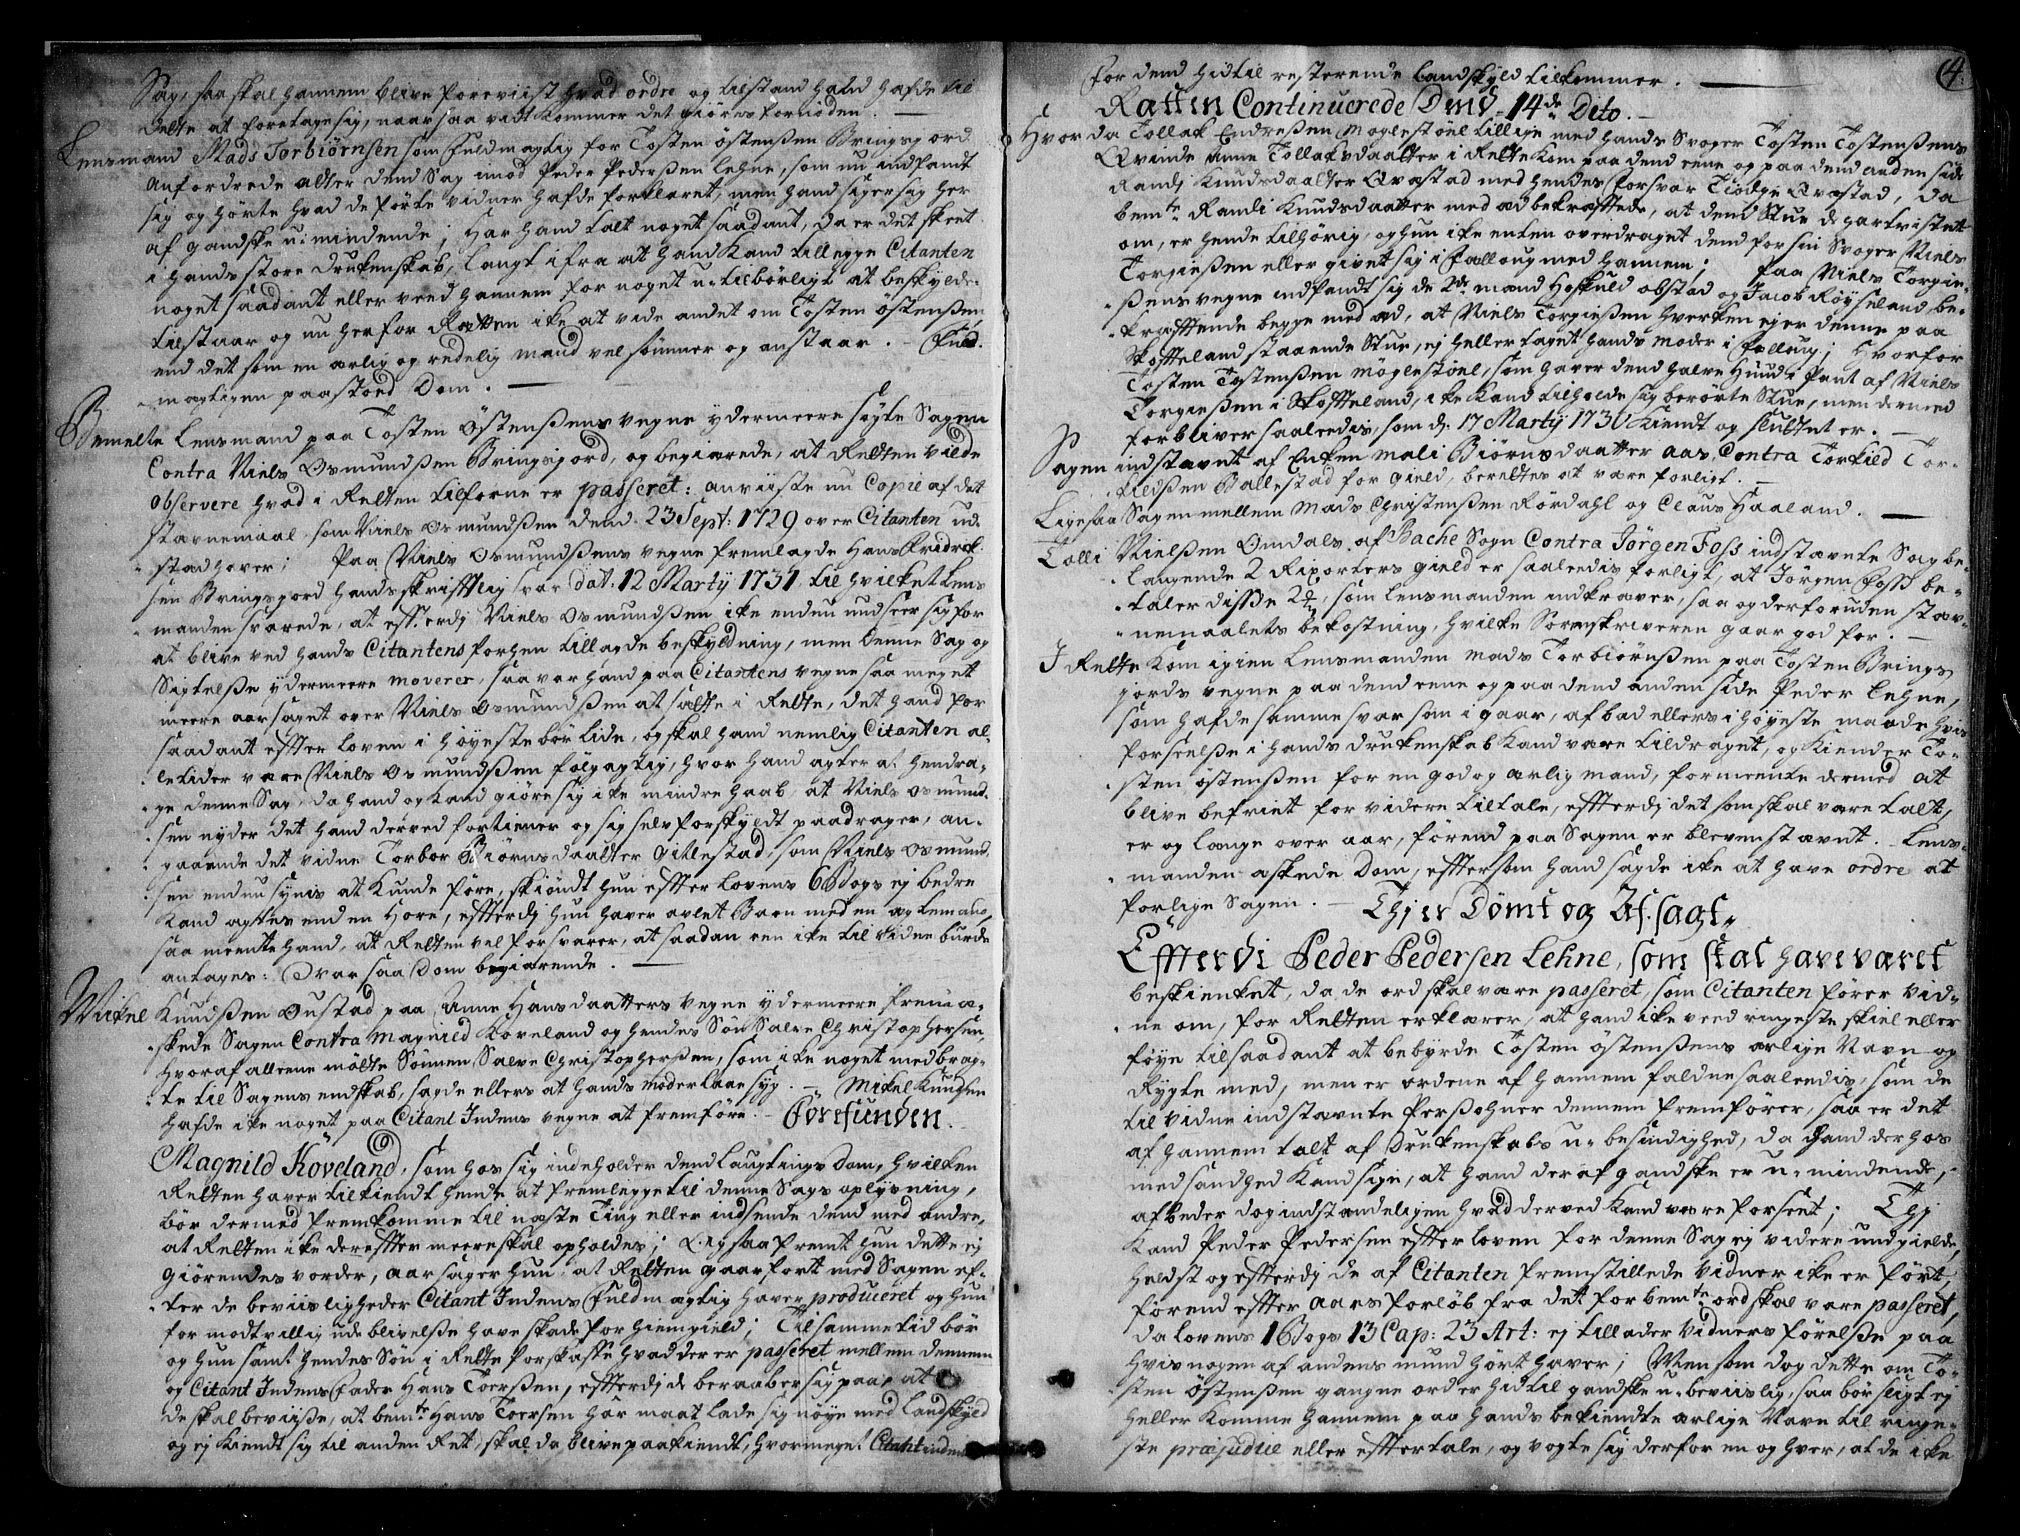 Sag, saa skal hannem blive foreviist hvad ordre og tilstand hand hafde til
dette at foretage sig, naar saa vidt kommer det giøres fornøden. —
Lensmand Mads Torbiørnsen som fuldmægtig for Tosten Østenßen Bringsiord
anfordrede atter dend Sag imod Peder Pederßen Lehne, som nu indfandt
sig og hørte hvad de førte vidner hafde forklaret, men hand siger sig her
af gandske u-mindende; Har hand talt noget saadant, da er det skeet
i hands store drukenskab, langt ifra at hand kand tillegge Citanten
noget saadant eller veed hannem for noget u-tilbørligt at beskylde.
tilstaar og nu her for Rætten ike at vide andet om Tosten Østenßen,
end det som en ærlig og redelig mand vel sømmer og anstaar. — Fuld-
mægtigen paastoed Dom. —
Bemelte Lensmand paa Tosten Østenßens vegne ydermeere søgte Sagen
Contra Niels Osmundßen Bringsiord, og begiærede, at Retten vilde
observere hvad i Retten tilforne er passeret: anviiste nu Copie af det
stavnemaal som Niels Osmundßen dend 23 Sept: 1729 over Citanten ud-
stæd haver; Paa Niels Osmundßens vegne fremlagde Hans Fridrik-
sen Bringsiord hands skrifftlig svar dat: 12 Martij 1731, til hvilket Lens
manden svarede, at efft-erdj Niels Osmundßen ike endnu undseer sig for
at blive ved hands Citantens forhen tillagde beskyldning, men denne Sag og
Sigtelße ydermeere moverer, saa var hand paa Citantens vegne saa meget
meere aarsaget over Niels Osmundßen at sætte i Rette, det hand for
saadant effter loven i høyeste bør lide, og skal hand nemlig Citanten al-
letider være Niels Osmundßen følgagtig, hvor hand agter at hendra-
ge denne Sag, da hand og kand giøre sig ike mindre haab, at Niels Osmund-
sen nyder det hand derved fortiener og sig selv forskyldt paadrager, an-
gaaende det vidne Torbor Biørnsdaatter Gitlestad, som Niels Osmund-
sen endnu synis at kunde føre, skiøndt hun effter lovens 6 Bogs ej bedre
kand agtes end en Hore, effterdj hun haver avlet Barn med en ægtemand,
saa meente hand, at Retten vel forsvarer, at saadan een ike til vidne burde
antages: Og var saa Dom begiærende. —
Mikel Knudßen Oustad paa Anne Hansdaatters vegne ydermeere frem æ-
skede Sagen Contra Magnild Koveland og hendes Søn Salve Christophersen,
hvoraf alleene mødte Sønnen Salve Christopherßen, som ike noget medbrag-
te til Sagens endskab, sagde ellers at hands moder laae syg. — Mickel Knudßen
hafde ike noget paa Citant Indens vegne at fremføre. — Forefunden.
Magnild Koveland, som hos sig indeholder dend Laugtings Dom, hvilken
Retten haver tilkiendt hende at fremlegge til denne Sags oplysning,
bør dermed fremkomme til næste Ting eller indsende dend med andre,
at Retten ike dereffter meere skal opholdes; Og saa fremt hun dette ej
giørendes vorder, aarsager hun, at Retten gaar fort med Sagen ef-
ter de beviisligheder Citant Indens Fuldmægtig haver produceret og hun
for modtvillig udeblivelße have skade for hiemgield; Til samme tid bør
og hun samt hendes Søn i Rette forskaffe hvad der er passeret mellem dennem
og Citant Indens Fader Hans Toerßen, effterdj de beraaber sig paa, at
de skal beviiße, at bemte Hans Toersen har maat lade sig nøye med Landskyld
og ej kiendt sig til anden Ret, skal da blive paakiendt, hvor meget Citantinden
4.
for dend hidtil resterende Landskyld tilkommer. —
Ratten Continuerede Dend 14de Dito. —
Hvor da Tollak Endreßen Møglestøel tillige med hands Svoger Tosten Tostenßens
Qvinde Anne Tollaksdaatter i Rette kom paa dend eene og paa dend anden side
Randj Knudsdaatter Qvæstad med hendes forsvar Tiødge Qvæstad, da
bemte Randi Knudsdaatter med æd bekræfftede, at dend Stue de har tvistet
om, er hende tilhørig, og hun ike enten overdraget dend for sin Svoger Niels
Torgießen eller givet sig i Fellaug med hannem; Paa Niels Torgie-
ßens vegne indfandt sig de 2de mænd Hoskuld Obstad og Jacob Røyseland be-
kræfftende begge med æd, at Niels Torgießen hverken ejer denne paa
Skofteland staaende Stue, ej heller taget hands moder i Fellaug; Hvorfor
Tosten Tostenßen Møglestøel, som haver dend halve Huud i Pant af Niels
Torgießen i Skofteland, ike kand tilholde sig berørte Stue, men dermed
forbliver saaledis, som d: 17 Martij 1730 kiendt og sluttet er. —
Sagen indstævnt af Enken Mali Biørnsdaatter Aas, Contra Torkild Tor-
kildßen Ballestad for gield, berettes at være forligt. —
Ligesaa Sagen mellem Mads Christenßen Rørdahl og Claus Haaland. —
Tolli Nielßen Omdals af Bache Sogn Contra Jørgen Foss indstævnte Sag be-
langende 2 Rixorters gield er saaledis forligt, at Jørgen Foss be-
taler diße 2, som Lensmanden indkræver, saa og derforuden stæv-
nemaalets bekostning, hvilke Sorenskriveren gaar god for. —
I Rette kom igien Lensmanden Mads Torbiørnßen paa Tosten Brings-
jords vegne paa dend eene og paa dend anden side Peder Lehne,
som hafde samme svar som i gaar, afbad ellers i høyeste maade hvis
forseelße i hands drukenskab kand være tildraget, og kiender To-
sten Østenßen for en god og ærlig mand, formeente dermed at
blive befriet for videre tiltale, effterdj det som skal være talt,
er og længe over aar, førend paa Sagen er bleven stævnt. — Lens-
manden æskede Dom, effter som hand sagde ike at have ordre at
forlige Sagen. — Thj er Dømt og Af-sagt
Effterdi Peder Pedersen Lehne, som skal have været
beskienket, da de ord skal være passeret, som Citanten fører vid-
ne om, for Retten erklærer, at hand ike veed ringeste skiel eller
føye til saadant at bebyrde Tosten Østenßens ærlige Navn og
Rygte med, men er ordene af hannem faldne saaledis, som de
til vidne indstævnte Perßohner dennem fremfører, saa er det
af hannem talt af drukenskabs u-besindighed, da hand derhos
med sandhed kand sige, at hand deraf gandske er u-mindende,
afbeder dog indstændeligen hvad derved kand være forseet; Thj
kand Peder Pedersen effter loven for denne Sag ej videre undgielde,
heldst og effterdj de af Citanten fremstillede vidner ike er ført,
førend effter aars forløb fra det forbemte ord skal være passeret,
da Lovens 1 Bogs 13 Cap: 23 Art: ej tillader vidners førelße paa
hvis nogen af andens mund hørt haver; Men som dog dette om To-
sten Østenßen gangne ord er hidtil gandske u-beviislig, saa bør sligt ej
heller komme hannem paa hands bekiendte ærlige Navn til ringe-
ste præjudice eller effter tale, og vogte sig derfor en og hver, at de ike